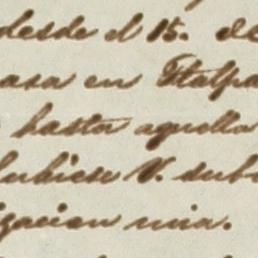 desde el 15. de
casa en Ttalpa
hasta aquella
hubiese V. sub
gacion mia.